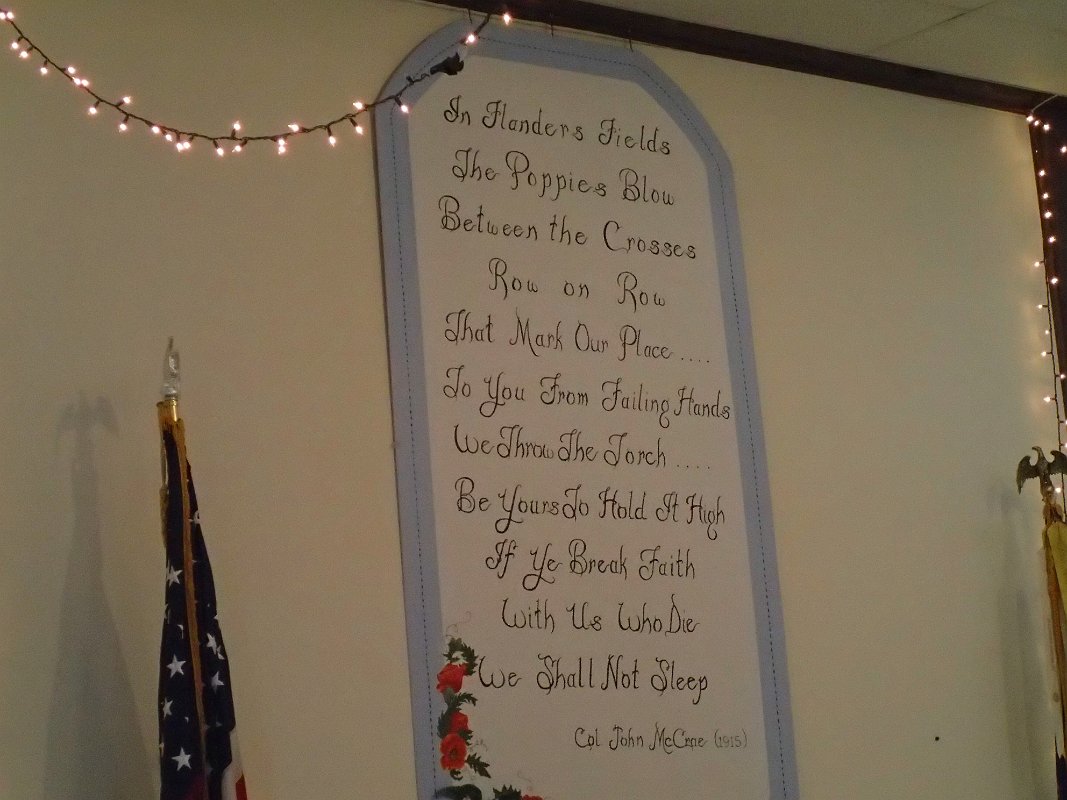 In Flanders Fields
The Poppies Blow
Between the Crosses
Row on Row
That Mark Our Place ....
To You From Failing Hands
We Throw The Torch ....
Be Yours To Hold It High
If Ye Break Faith
With Us Who Die
We Shall Not Sleep
Cpl John McCrae (1915)